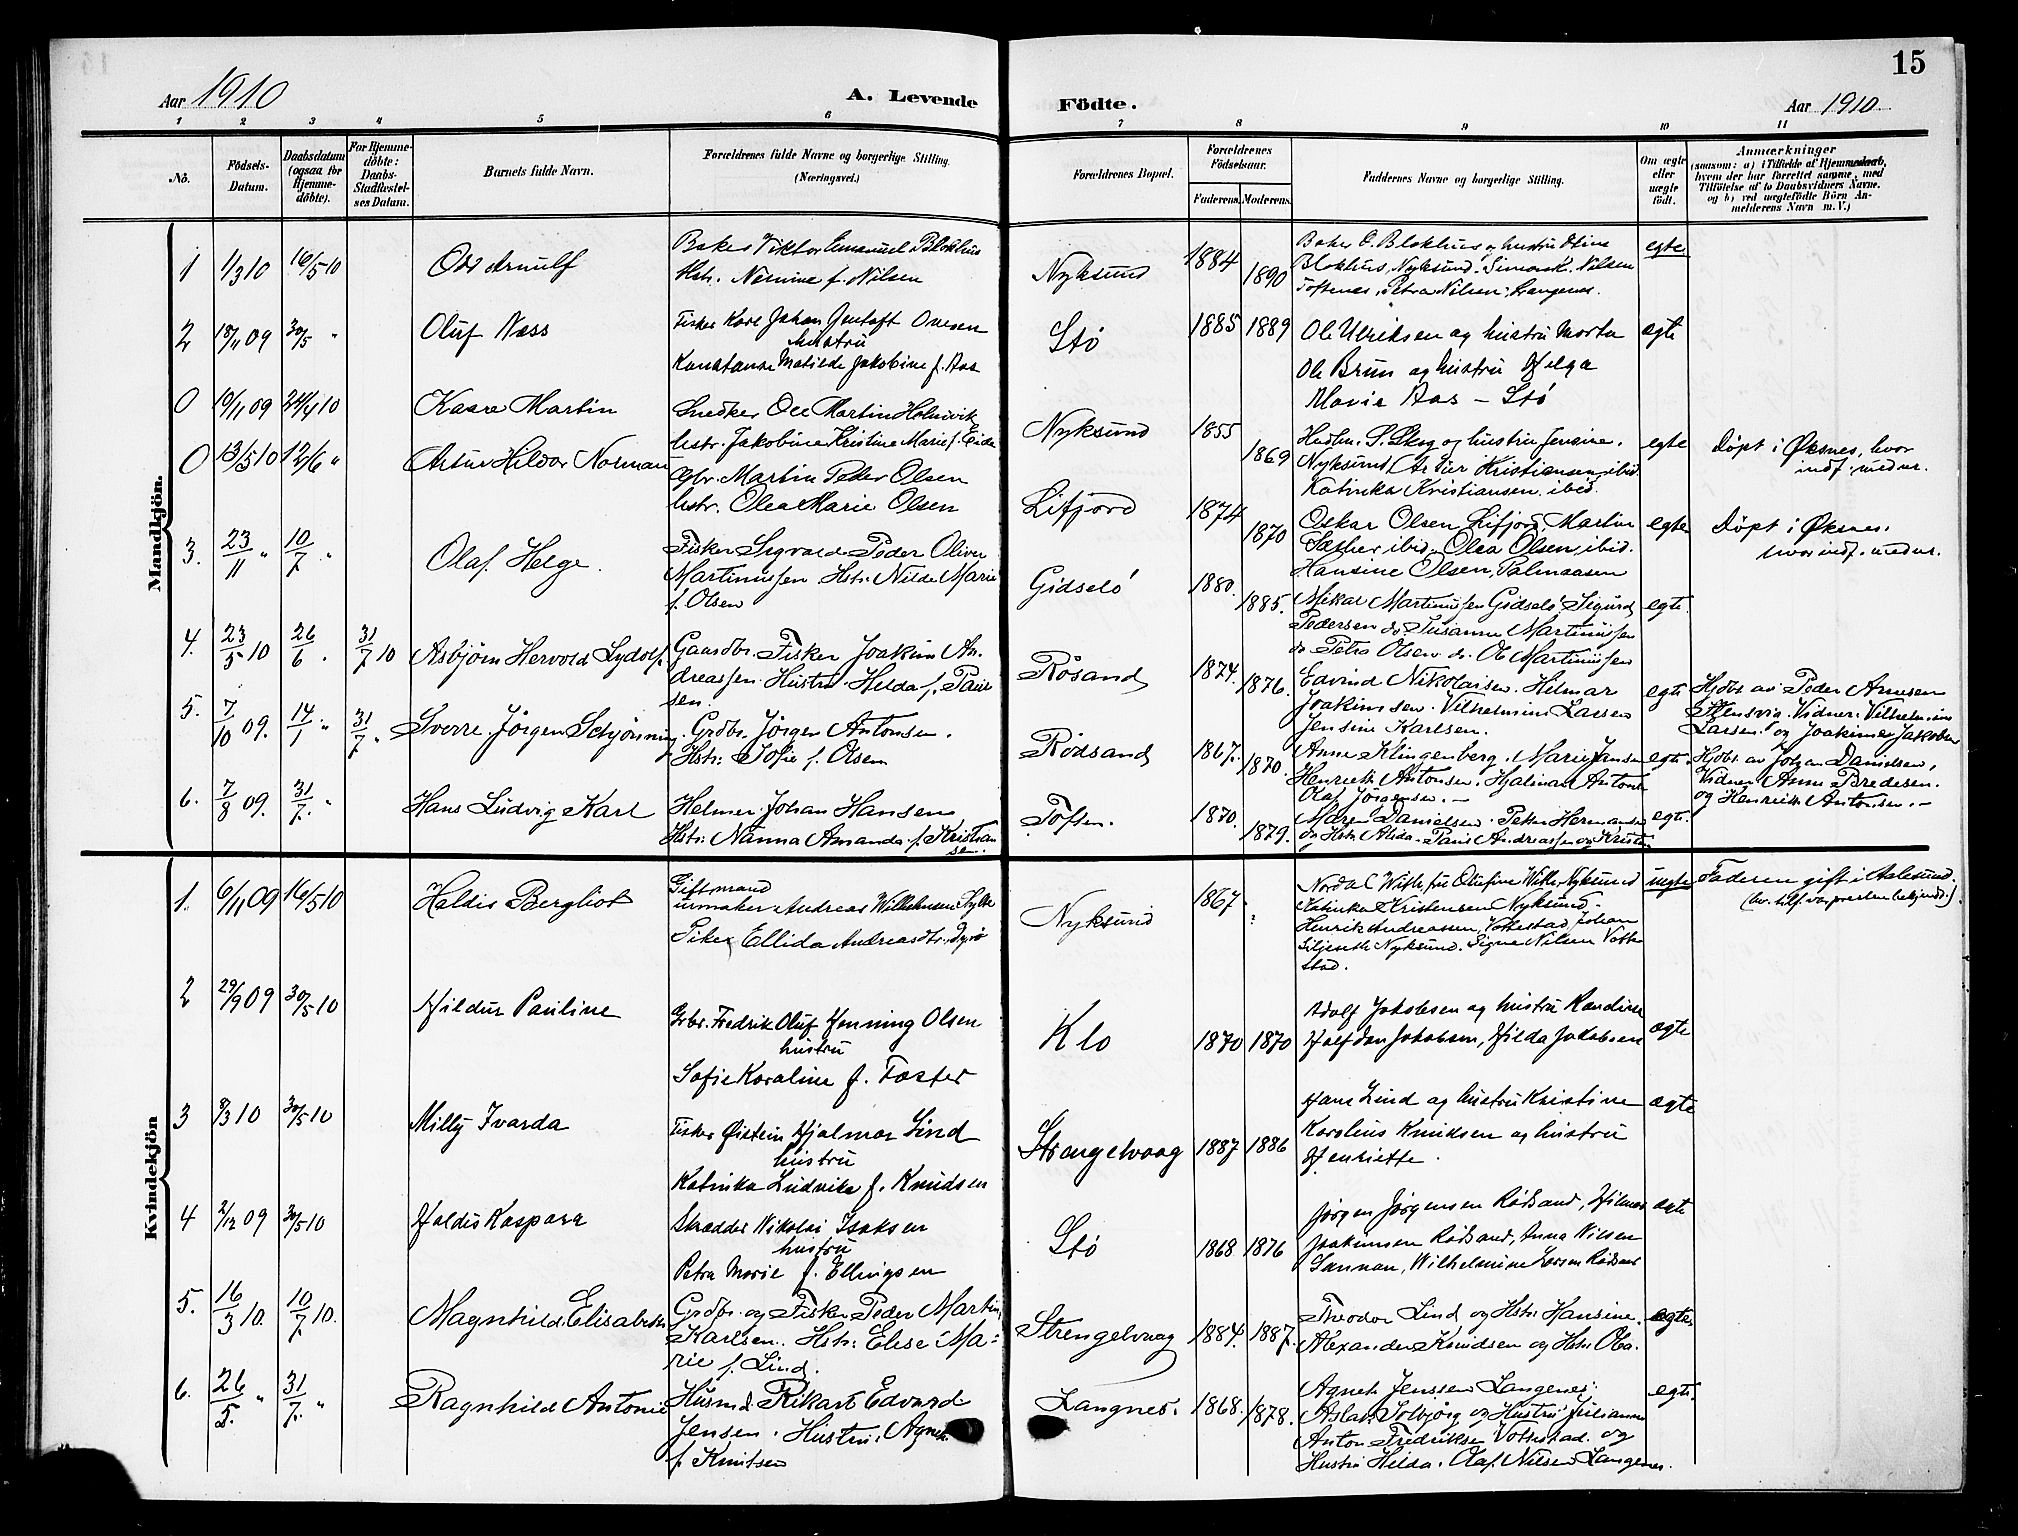 15
Aar 1910
A. Levende
Födte.
Aar 1910
1 2 3 4 5 6 7 8 9 10 11
No.
Födsels-
Datum.
Daabsdatum
(ogsaa for
Hjemme-
döbte).
For Hjemme-
döbte:
Daabs-
Stadfæstel-
ses Datum.
Barnets fulde Navn.
Forældrenes fulde Navne og borgerlige Stilling.
(Næringsvei.)
Forældrenes Bopæl.
Forældrenes
Födselsaar.
Faderens. Moderens.
Faddernes Navne og borgerlige Stilling.
Om ægte
eller
uægte
födt.
Anmærkninger
(saasom: a) i Tilfælde af Hjemmedaab,
hvem der har forrettet samme, med
Tilföielse af to Daabsvidners Navne,
og b) ved uægtefödte Börn An-
melderens Navn m. V.)
Mandkjön.
1 1/3 10 16/5 10 Odd Arnulf
Baker Viktor Emanuel Blokhus
Hstr. Nærine f. Nilsen
Nyksund 1884 1890
Baker O. Blokhus og hustru Oline
Blokhus, Nyksund. Simon K. Nilsen
Toftenes, Petra Nilsen, Langenes.
egte
2 18/11 09 30/5 " Oluf Næss
Fisker Karl Johan Gustaft Ovesen
hustru
Konstanse Matilde Jakobine f. Aas
Stø 1885 1889
Ole Ulriksen og hustru Marta
Ole Brun og hustru Helga
Marie Aas - Stø
ægte
0 19/11 09 24/4 10 Kaare Martin
Snedker Ole Martin Holmvik
hstr. Jakobine Kristine Marie f. Eide
Nyksund 1855 1869
S. Skog og hustru Jensine,
Nyksund, Kristiansen, ibid.
Katinka Kristiansen ibid.
egte
Døpt i Øksnes, hvor
indf. med nr.
0 13/5 10 12/6 " Artur Hildor Norman
Gbr. Martin Peder Olsen
hstr. Olea Marie Olsen
Lifjord 1874 1870
Oskar Olsen, Lifjord, Martin
Sæther ibid. Olea Olsen, ibid.
Hansine Olsen,
egte
Døpt i Øksnes.
hvor indf. med nr.
3. 23/11 " 10/7 " Olaf Helge.
Fisker Sigvald Peder Oliver
Martinussen Hstr: Nilde Marie
f. Olsen
Gidselö 1880. 1885.
Mikal Martinussen Gidselö, Sigurd
Pedersen do. Susanne Martinussen
do Petra Olsen do. Ole Martinussen
egte.
4. 23/5 10 26/6 . 31/7 10 Asbjörn Hervold Lydolf.
Gaardbr. Fisker Joakim An-
dreassen. Hustru Hilda f. Paul
sen.
Rösand 1874. 1876.
Edvind Nikolaisen. Helmar
Joakimsen. Vilhelmine Larsen
Jensine Karlsen.
egte
Hjdbt. av Peder Arnesen
Vidner: Vilhelmine
Larsen. og Joakime Jakobsen
5. 7/10 09. 14/1 " 31/7 " Sverre Jörgen Schjönning.
Grdbr. Jörgen Antonsen.
Hstr: Sofie f. Olsen
Rödsand 1867. 1870.
Anne Klingenberg. Marie Jansen
Henrik Antonsen. Hjalmar Antons.
Olaf Jörgensen. -
egte.
Hjdbt. av Johan Danielsen,
Vidner Anne Bredesen.
og Henrik Antonsen. -
6. 7/8 09. 31/7. " Hans Ludvig Karl
Helmer Johan Hansen
Hstr: Nanna Amanda f. Kristian
sen.
Toften. 1870. 1879.
Maren Danielsen. Peter Hermansen
og Hstr. Alida. Paul Andreassen og Kristin
egte.
Kvindekjön
1. 6/11 09 16/5 10 Haldis Bergliot
Gift mand
urmaker Andreas Wilhelmsen Sylte
Pike Ellida Andreasdtr. Dyrö
Nyksund 1867.
Nordal With, fru Olufine With, Nyksund
Katinka Kristensen Nyksund.
Henrik Andreassen, Vottestad Johan
Siljeseth Nyksund. Signe Nilsen Votte
stad.
uegte
Faderen gift i Aalesund.
2 29/9 09 30/5 10 Hildur Pauline
Grbr. Fredrik Oluf Henning Olsen
hustru
Sofie Karoline f. Foster
Klo 1870 1870
Adolf Jakobsen og hustru Randine
Halfdan Jakobsen, Hilda Jakobsen
ægte
3 8/3 10 30/5 10 Milly Ivarda
Fisker Øistein Hjalmar Lind
hustru
Katinka Ludvika f. Knudsen
Strengelvaag 1887 1886
Hans Lind og hustru Kristine
Karolius Knudsen og hustru
Henriette.
ægte
4 2/12 09 30/5 10 Haldis Kaspara
Skrædder Nikolai Isaksen
hustru
Petra Marie f. Ellingsen
Stø 1868 1876
Jørgen Jørgensen Rødsand, Hilmar
Joakimsen Rødsand, Anna Nilsen
Sannan, Wilhelmine Larsen Rødsand
ægte
5. 16/3 10. 10/7 10. Magnhild Elisabeth
Grdbr. og Fisker Peder Martin
Karlsen. Hstr: Elise Ma-
rie f. Lind.
Strengelvaag 1884. 1887.
Theodor Lind og Hstr: Hansine.
Alexander Knudsen og Hstr. Ola.
egte.
6. 26/5. " 31/7. " Ragnhild Antonie
Husmd. Rikart Edvard
Jensen. Hustru: Agnes
f. Knutsen
Langnes. 1868. 1878.
Agnete Jenssen Langenes.
Aslak Solbjörg og Hustru Julianne
Anton Fredriksen Vottestad. og
Hustru Hilda. Olaf Nilsen Langenes.
egte.